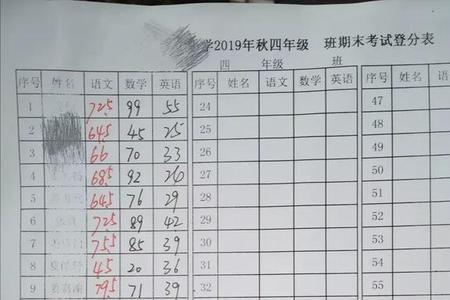 学2019年秋四年级 班期末考试登分表
四 年级 班
序号 姓名 语文 数学 英语 序号 姓名 语文 数学 英语 序号 姓名 语
1 72.5 99 55 24 47
2 64.5 45 25 25 48
3 66 70 33 26 49
4 68.5 92 26 27 50
5 64.5 76 29 28 51
6 72.5 89 42 29 52
7 75.5 85 39 30 53
8 45 20 36 31 54
9 79.5 71 39 32 55